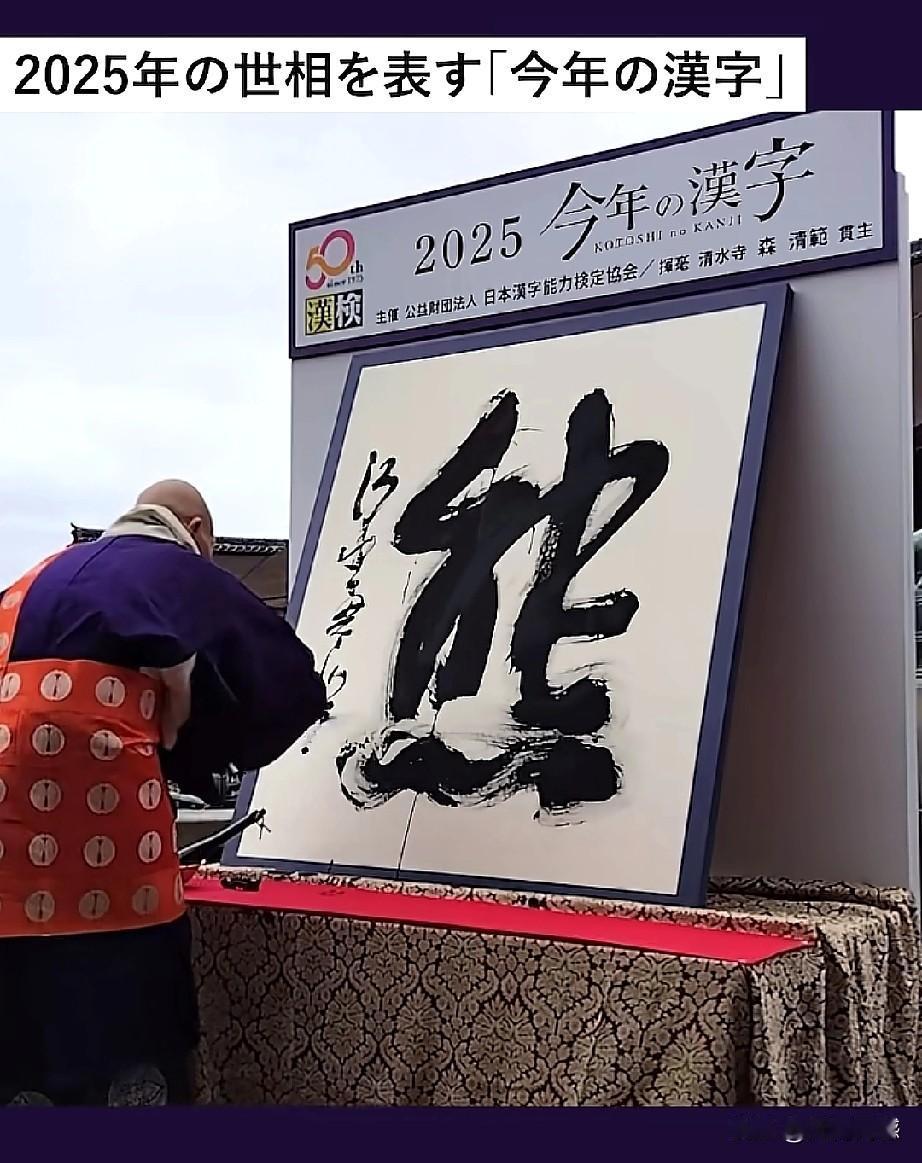 2025年の世相を表す「今年の漢字」
50th
since 1975
漢検
2025 今年の漢字
KOTOSHI no KANJI
主催 公益財団法人 日本漢字能力検定協会／揮毫 清水寺 森 清範 貫主
熊